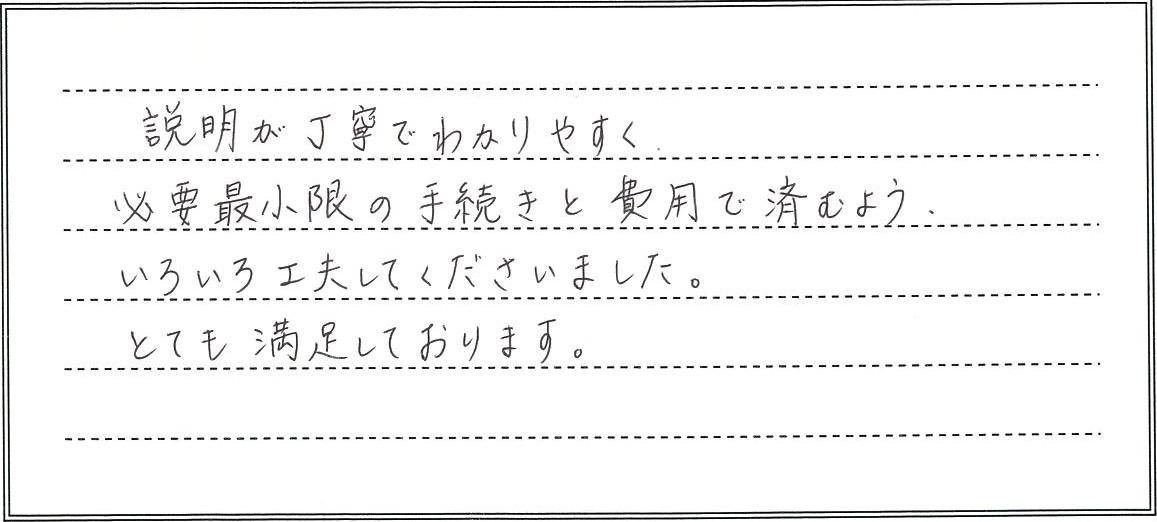 説明が丁寧でわかりやすく、
必要最小限の手続きと費用で済むよう、
いろいろ工夫してくださいました。
とても満足しております。